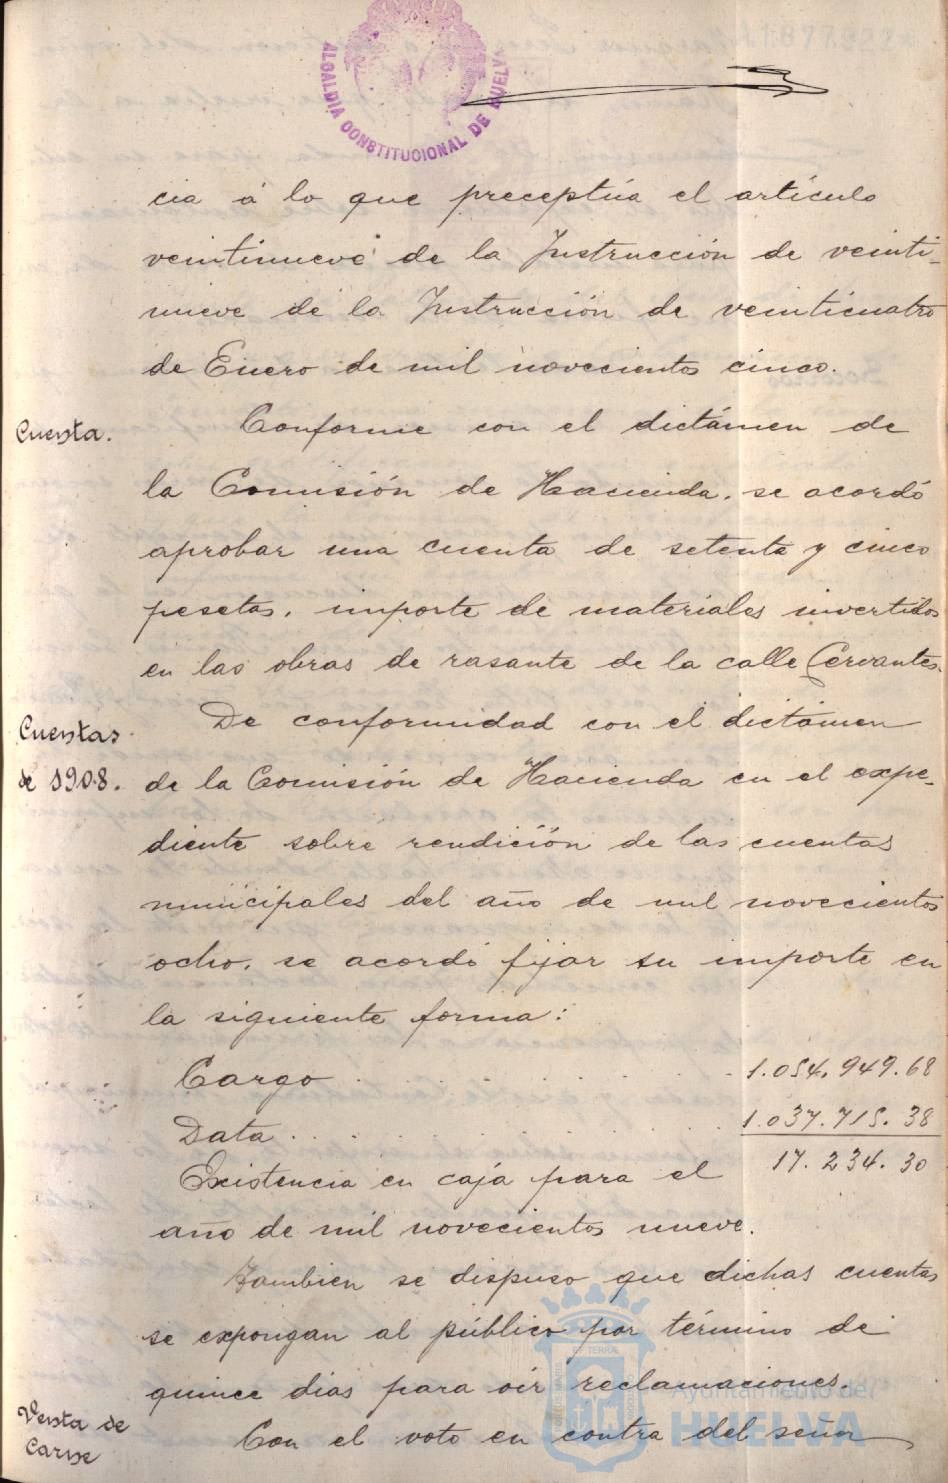 1877922
ALCALDIA CONSTITUCIONAL DE HUELVA
cia á lo que preceptúa el artículo
veintinueve de la Instrucción de veinti-
nueve de la Instrucción de veinticuatro
de Enero de mil novecientos cinco.
Cuenta.
Conforme con el dictámen de
la Comisión de Hacienda, se acordó
aprobar una cuenta de setenta y cinco
pesetas, importe de materiales invertidos
en las obras de rasante de la calle Cervantes.
Cuentas
de 1908.
De conformidad con el dictámen
de la Comisión de Hacienda en el expe-
diente sobre rendición de las cuentas
municipales del año de mil novecientos
ocho, se acordó fijar su importe en
la siguiente forma:
Cargo . . . . . . . 1.054.949.68
Data . . . . . . . 1.037.715.38
Existencia en caja para el 17.234.30
año de mil novecientos nueve.
Tambien se dispuso que dichas cuentas
se expongan al público por término de
quince dias para oir reclamaciones.
Venta de
Carne
Con el voto en contra del señor
Ayuntamiento de
HUELVA